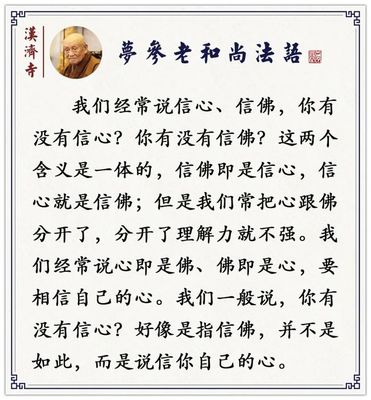 漢濟寺
夢參老和尚法語
我们经常说信心、信佛，你有
没有信心？你有没有信佛？这两个
含义是一体的，信佛即是信心，信
心就是信佛；但是我们常把心跟佛
分开了，分开了理解力就不强。我
们经常说心即是佛、佛即是心，要
相信自己的心。我们一般说，你有
没有信心？好像是指信佛，并不是
如此，而是说信你自己的心。